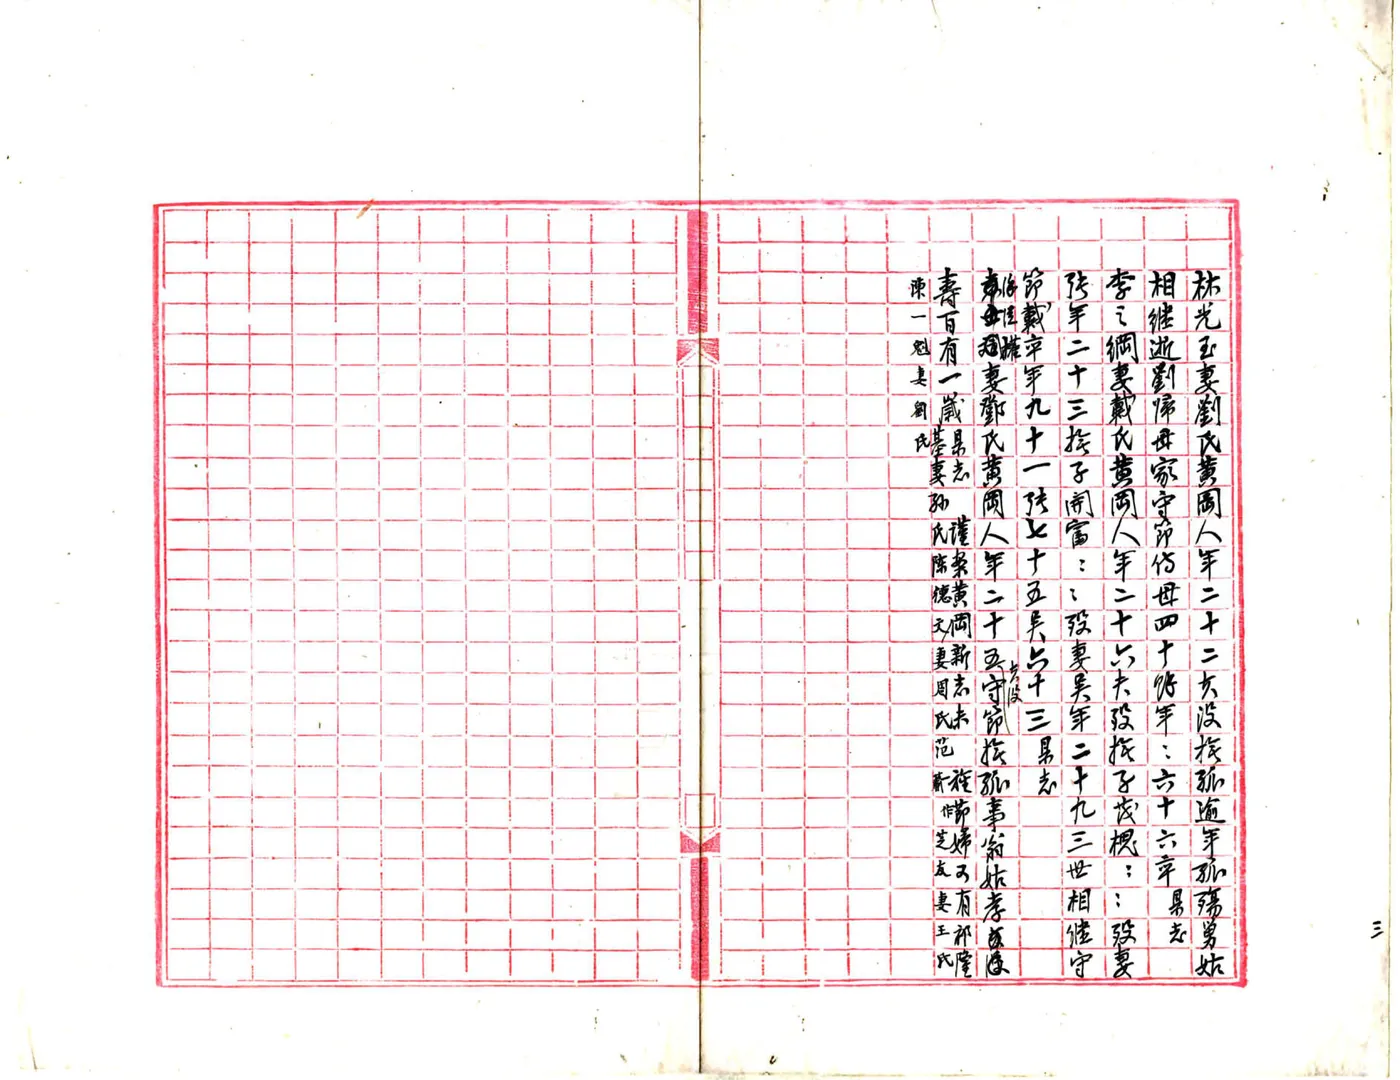 林光玉妻劉氏黄岡人年二十二夫没撫孤逾年孤殤舅姑
相继逝劉歸母家守節侍母四十餘年〻六十六卒県志
李之綱妻戴氏黄岡人年二十六夫殁撫子茂槐〻〻殁妻
张年二十三撫子開富〻〻殁妻吴年二十九三世相继守
節戴卒年九十一张七十五吴六十三県志
妻鄧氏黄岡人年二十五夫没守節撫孤事翁姑孝
壽百有一歲県志
謹案黄岡新志未旌節婦不有祁隆
基妻孙氏陈德文妻周氏范作芝友妻王氏
陳一魁妻劉氏
三